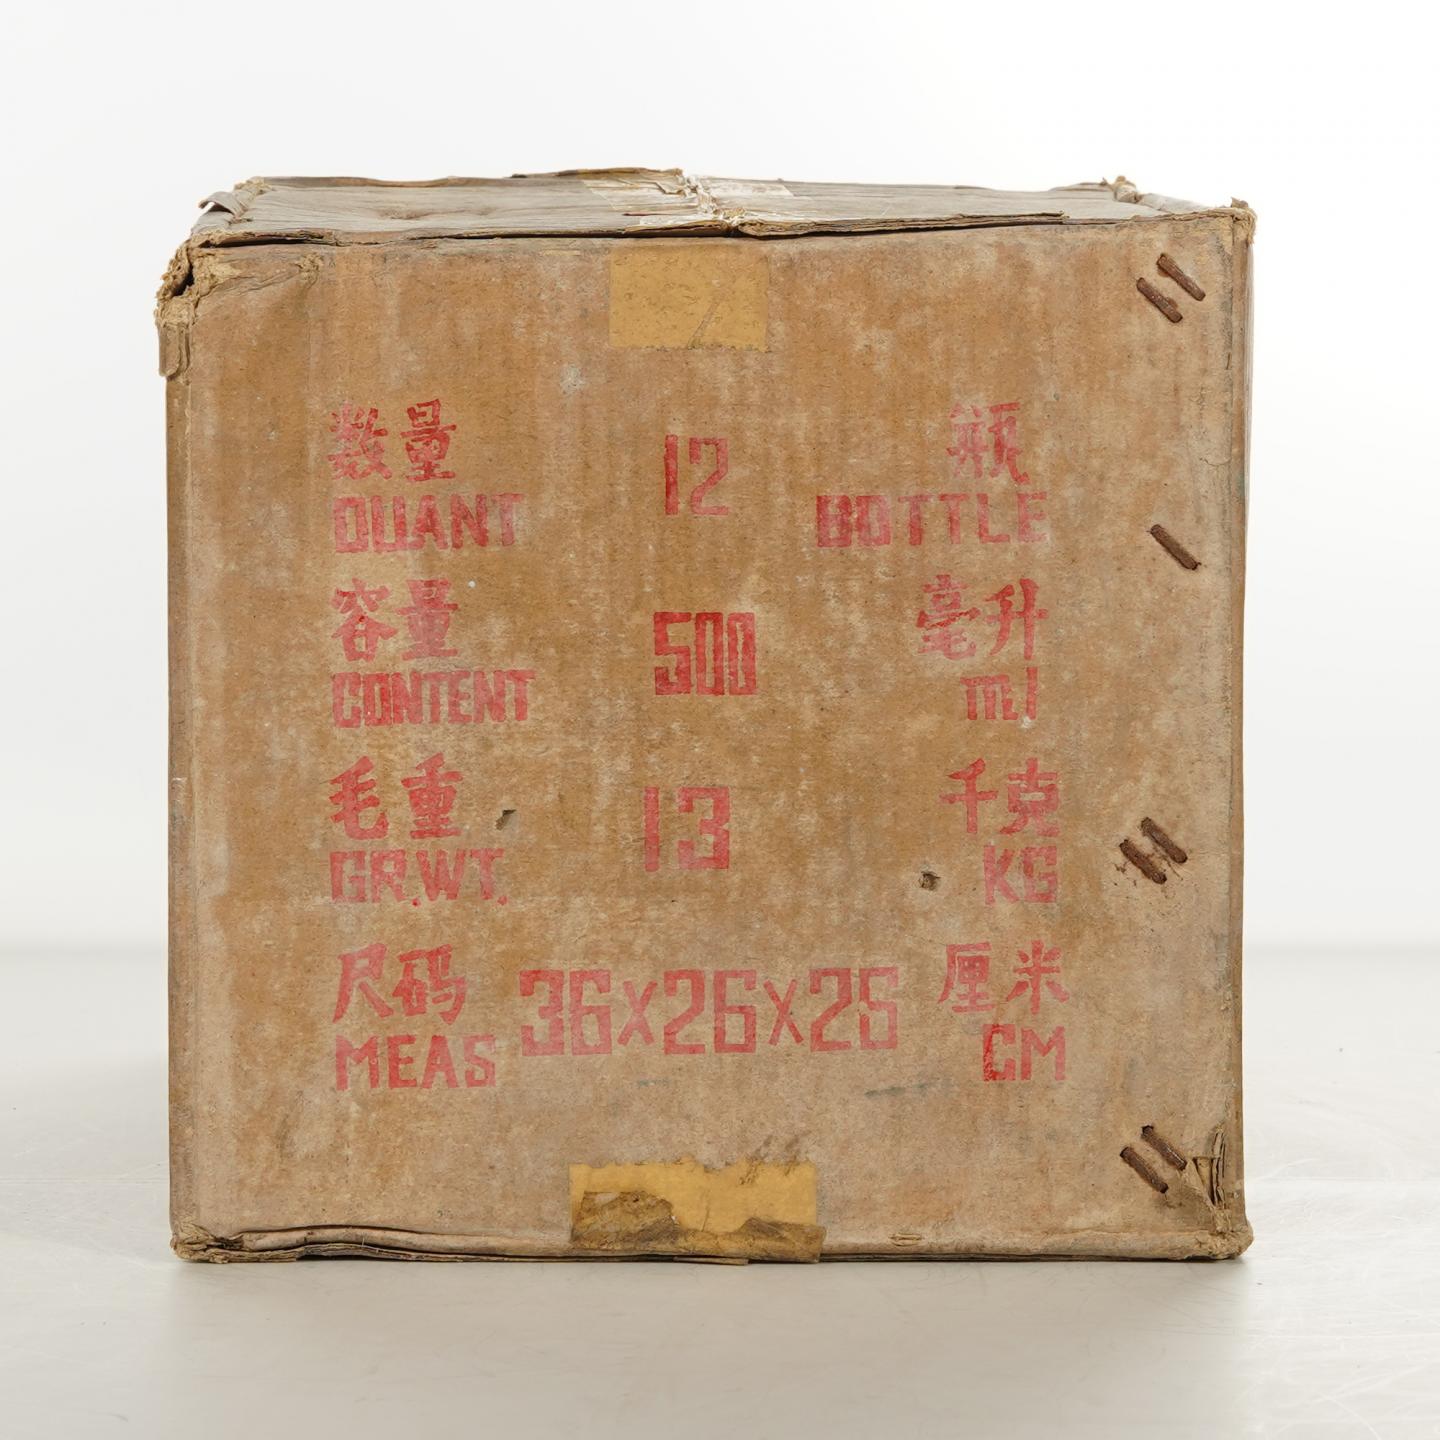 数量 12 瓶
QUANT BOTTLE
容量 500 毫升
CONTENT ml
毛重 13 千克
GR.WT. KG
尺码 36x26x26 厘米
MEAS CM